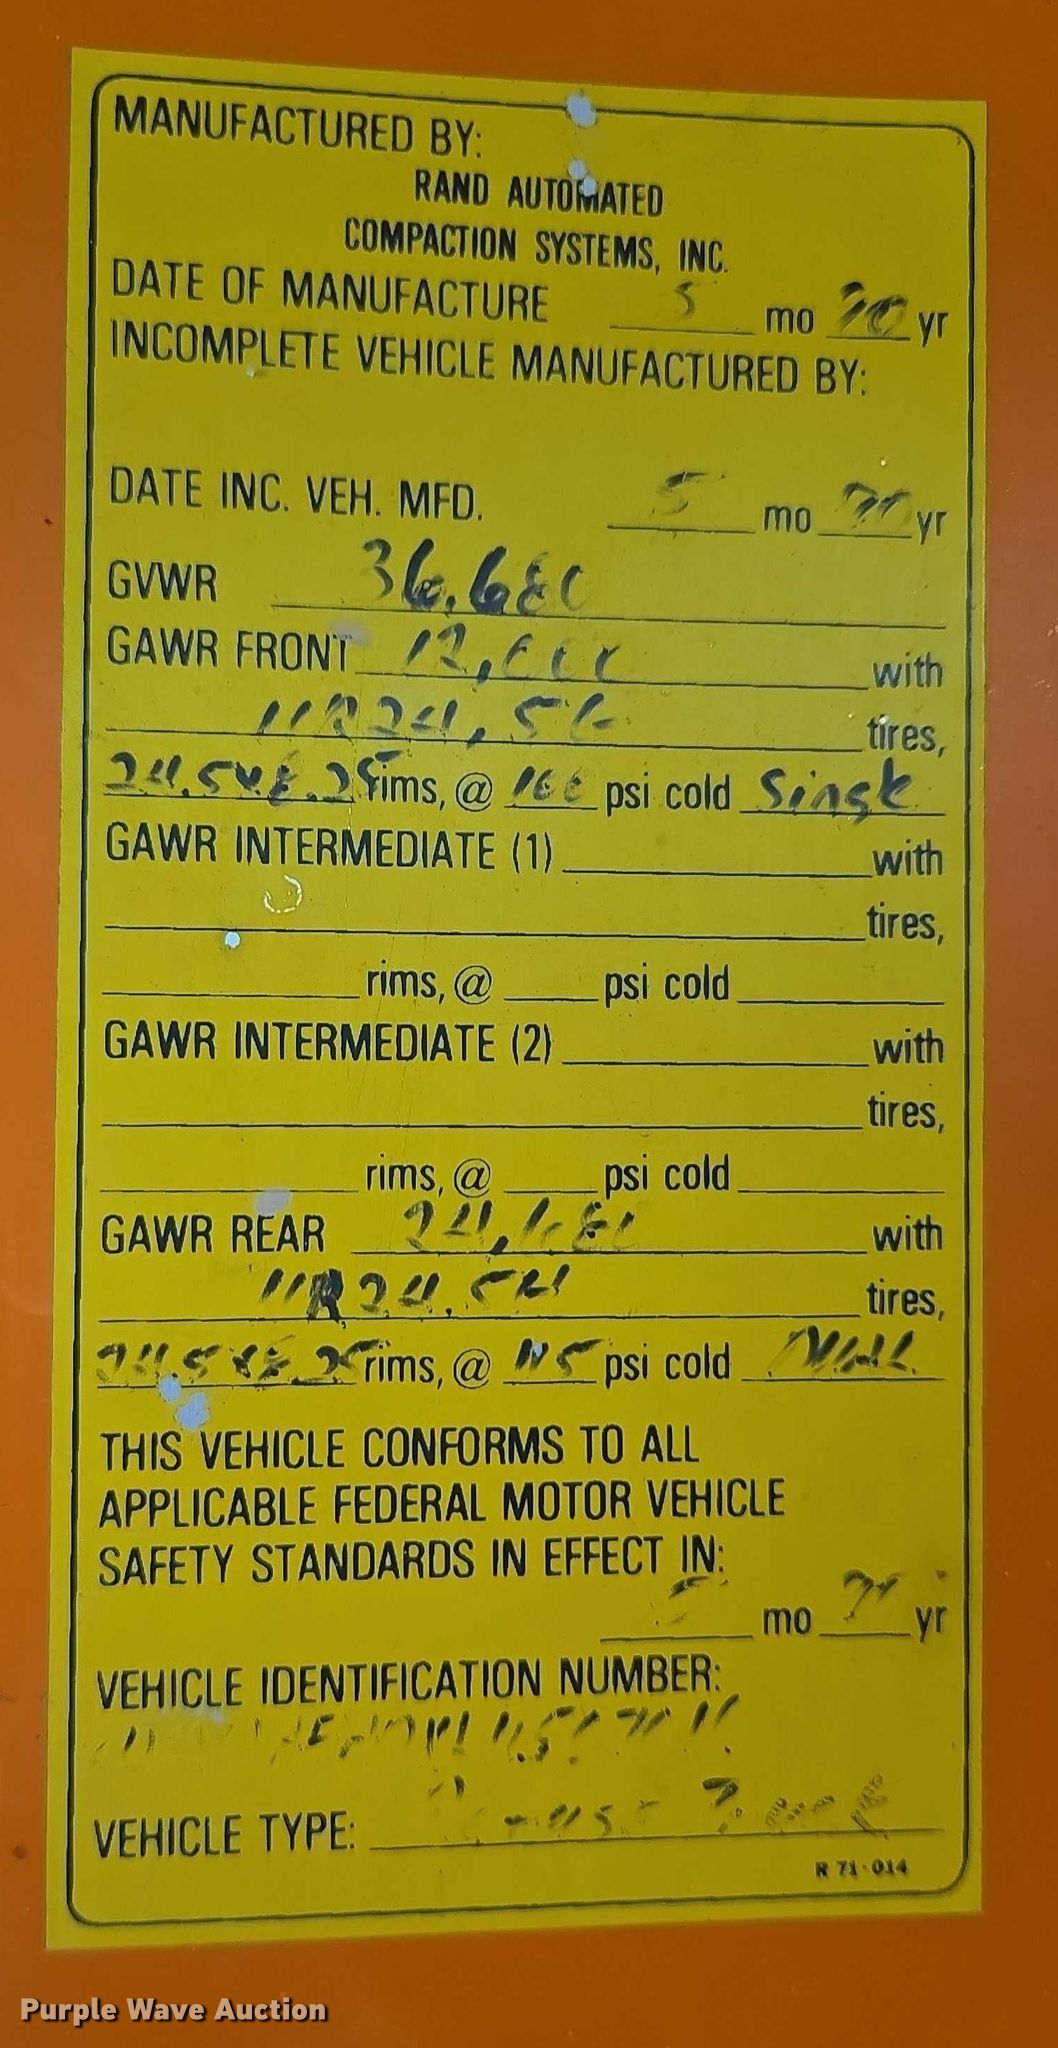 MANUFACTURED BY:
RAND AUTOMATED
COMPACTION SYSTEMS, INC.
DATE OF MANUFACTURE 5 mo yr
INCOMPLETE VEHICLE MANUFACTURED BY:
DATE INC. VEH. MFD. 5 mo yr
GVWR 36,680
GAWR FRONT 12,000 with
11R24.5G tires,
24.5x8.25 rims, @ psi cold Single
GAWR INTERMEDIATE (1) with
tires,
rims, @ psi cold
GAWR INTERMEDIATE (2) with
tires,
rims, @ psi cold
GAWR REAR 24,680 with
11R24.5H tires,
24.5x8.25 rims, @ psi cold
THIS VEHICLE CONFORMS TO ALL
APPLICABLE FEDERAL MOTOR VEHICLE
SAFETY STANDARDS IN EFFECT IN:
mo yr
VEHICLE IDENTIFICATION NUMBER:
VEHICLE TYPE:
R 71-014
Purple Wave Auction